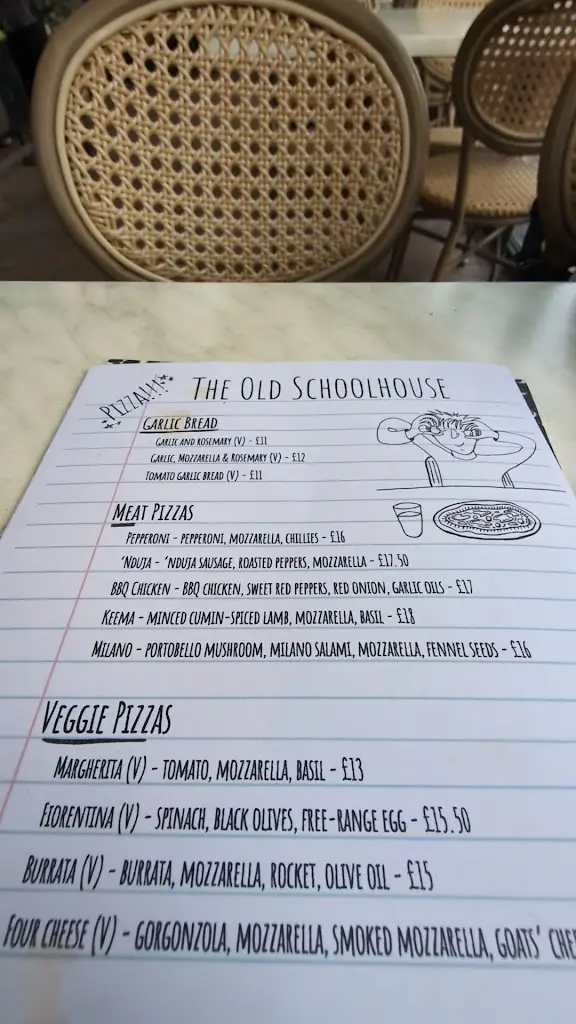 PIZZA!!!
THE OLD SCHOOLHOUSE
GARLIC BREAD
GARLIC AND ROSEMARY (V) - £11
GARLIC, MOZZARELLA & ROSEMARY (V) - £12
TOMATO GARLIC BREAD (V) - £11
MEAT PIZZAS
PEPPERONI - PEPPERONI, MOZZARELLA, CHILLIES - £16
'NDUJA - 'NDUJA SAUSAGE, ROASTED PEPPERS, MOZZARELLA - £17.50
BBQ CHICKEN - BBQ CHICKEN, SWEET RED PEPPERS, RED ONION, GARLIC OILS - £17
KEEMA - MINCED CUMIN-SPICED LAMB, MOZZARELLA, BASIL - £18
MILANO - PORTOBELLO MUSHROOM, MILANO SALAMI, MOZZARELLA, FENNEL SEEDS - £16
VEGGIE PIZZAS
MARGHERITA (V) - TOMATO, MOZZARELLA, BASIL - £13
FIORENTINA (V) - SPINACH, BLACK OLIVES, FREE-RANGE EGG - £15.50
BURRATA (V) - BURRATA, MOZZARELLA, ROCKET, OLIVE OIL - £15
FOUR CHEESE (V) - GORGONZOLA, MOZZARELLA, SMOKED MOZZARELLA, GOATS' CHE